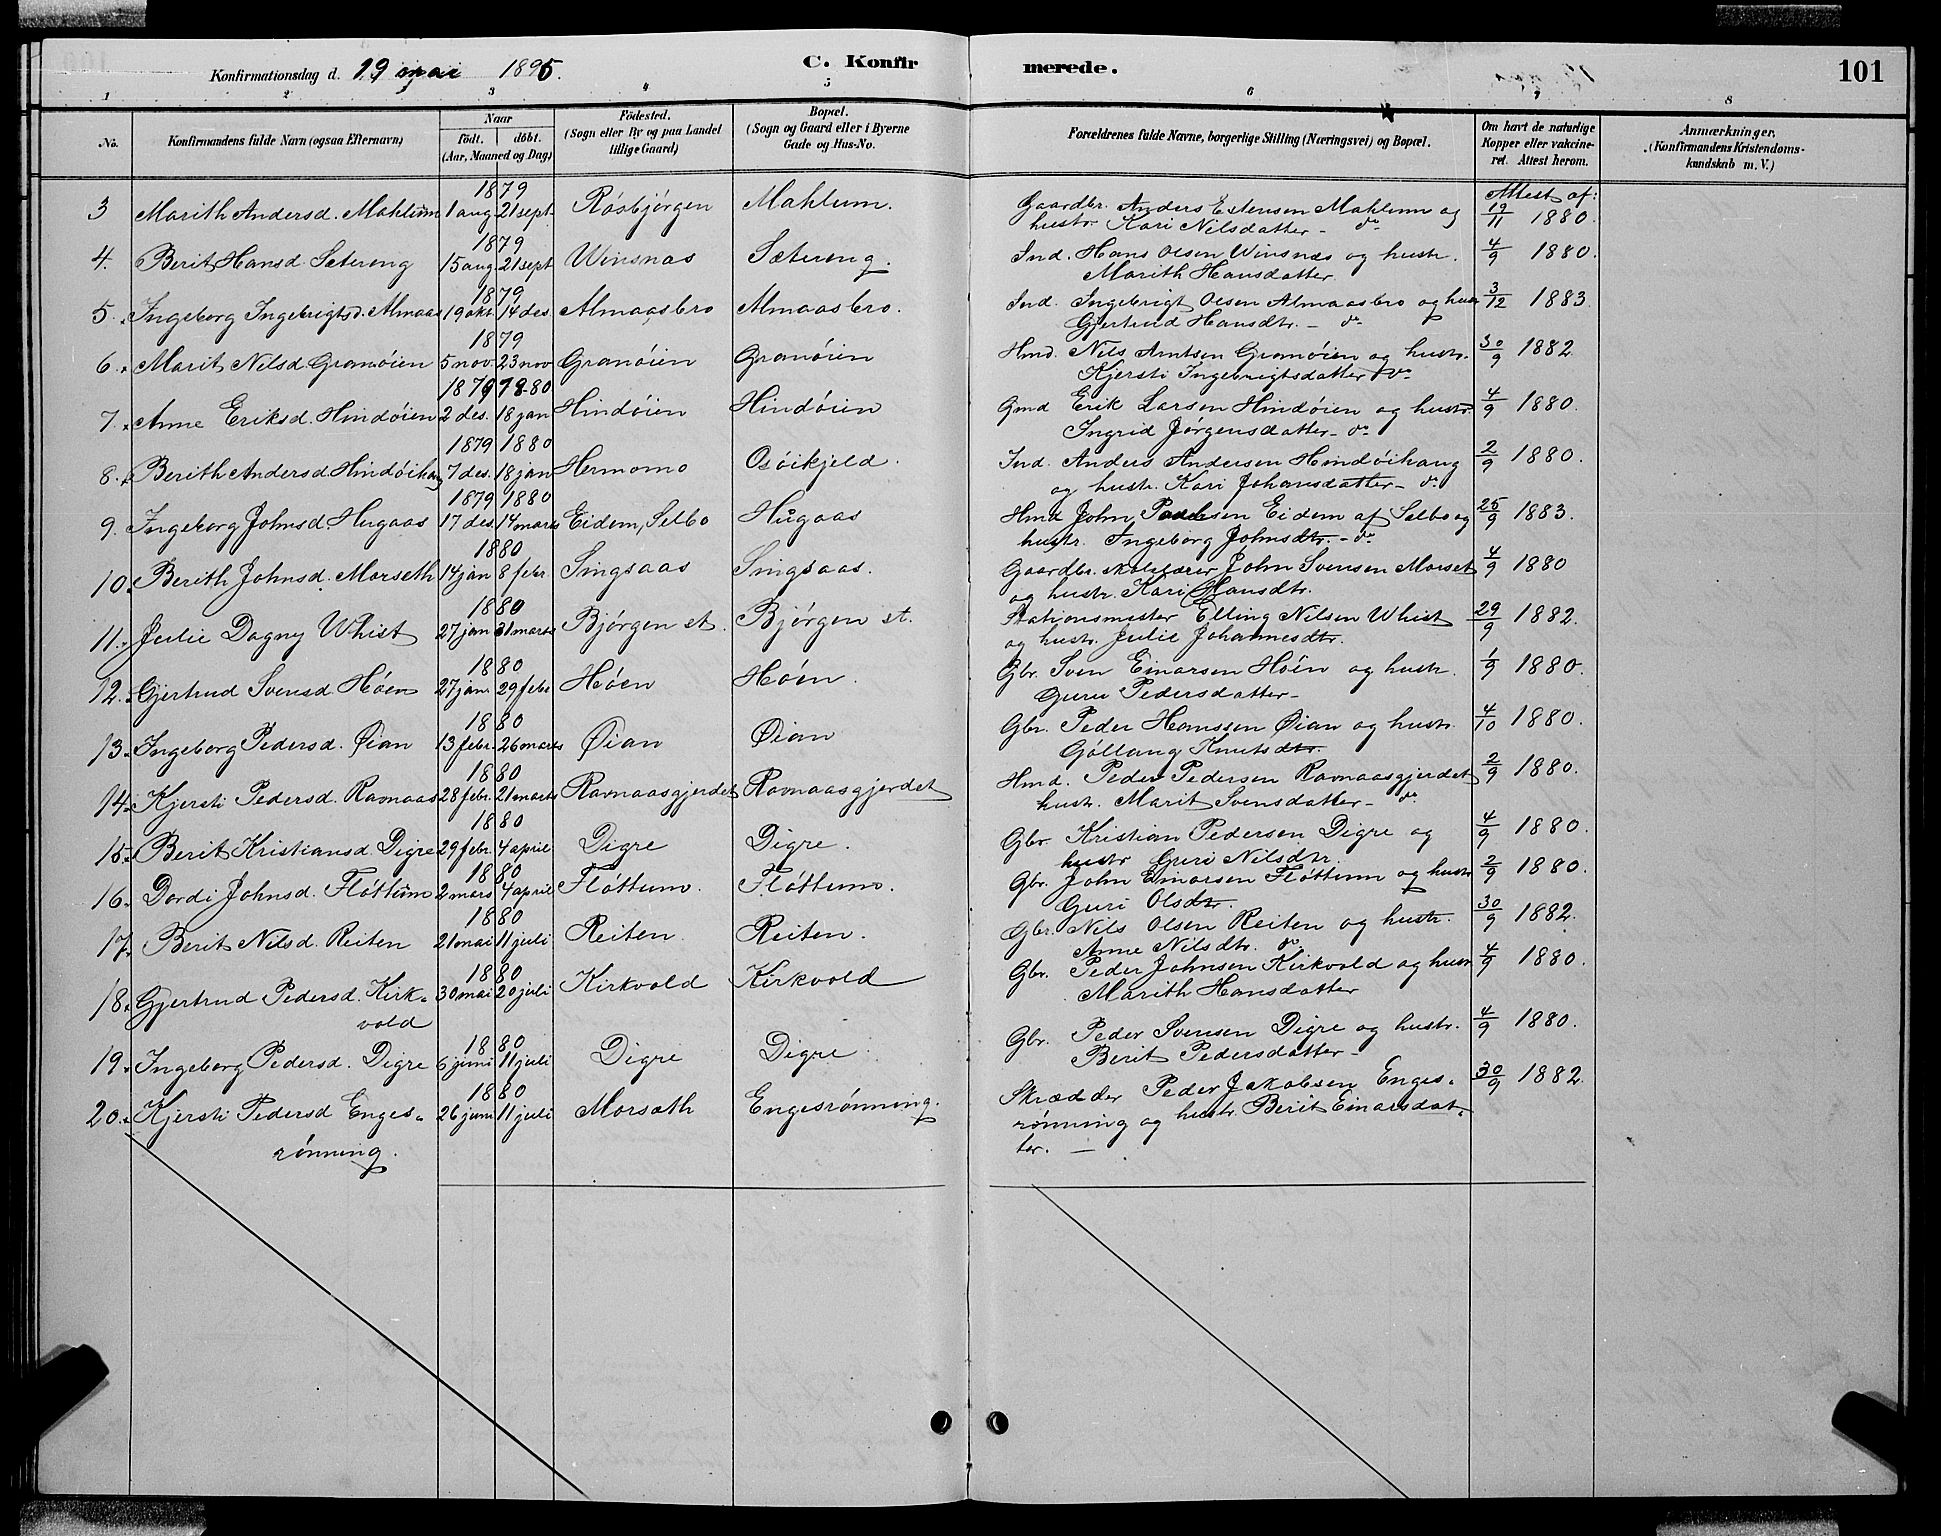 Konfirmationsdag d. 19 mai 1895.
C. Konfirmerede.
101
1 2 3 4 5 6 7 8
No. Konfirmandens fulde Navn (ogsaa Efternavn) Naar födt. döbt. (Aar, Maaned og Dag) Födested. (Sogn eller By og paa Landet tillige Gaard) Bopæl. (Sogn og Gaard eller i Byerne Gade og Hus-No. Forældrenes fulde Navne, borgerlige Stilling (Næringsvei) og Bopæl. Om havt de naturlige Kopper eller vakcineret. Attest herom. Anmærkninger. (Konfirmandens Kristendomskundskab m. V.)
1879 Attest af:
3 Marith Andersd. Mahlum 1 aug. 21 sept. Rösbjörgen Mahlum. Gaardbr. Anders Estensen Mahlum og 19/11 1880.
hustr. Kari Nilsdatter - do
1879
4. Berit Hansd. Sætereng 15 aug. 21 sept Winsnas Sætereng. Ind. Hans Olsen Winsnæs og hustr. 4/9 1880.
Marith Hansdatter
1879
5. Ingeborg Ingebrigtsd. Almaas 19 okt. 14 des. Almaasbro Almaasbro. Ind. Ingebrigt Olsen Almaasbro og hustr 3/12 1883.
Gjertrud Hansdtr. - do
1879
6. Marit Nilsd. Granöien 5 nov. 23 nov Granöien Granöien Hmd. Nils Arntsen Granöien og hustr. 30/9 1882
Kjersti Ingebrigtsdatter do
1879 1880
7. Anne Eriksd. Hindöien 2 des. 18 jan Hindöien Hindöien Gmd Erik Larsen Hindöien og hustr. 4/9 1880.
Ingrid Jörgensdatter - do
1879 1880
8. Berith Andersd. Hindöihaug 7 des. 18 jan Hermomo Osöikjeld. Ind. Anders Andersen Hindöihaug 2/9 1880.
og hustr. Kari Johansdatter - do
1879 1880
9. Ingeborg Johnsd. Hugaas 17 des. 14 marts Eidem, Selbo Hugaas Hmd John Paulsen Eidem af Selbo og 25/9 1883.
hustr. Ingeborg Johnsdtr. - do
1880
10. Berith Johnsd. Morseth 14 jan 8 febr. Singsaas Singsaas. Gaardbr. skolelærer John Svensen Morset 4/9 1880
og hustr. Kari Hansdtr.
1880
11. Julie Dagny Whist 27 jan 31 marts Björgen st. Björgen st. Stationsmester Elling Nilsen Whist 29/9 1882.
og hustr. Julie Johannesdtr.
1880
12. Gjertrud Svensd. Höen 27 jan. 29 febr Höen Höen. Gbr. Sven Einarsen Höen og hustr. 1/9 1880.
Guru Pedersdatter -
1880
13. Ingeborg Pedersd. Øian 13 febr. 26 marts Øian Øian Gbr. Peder Hanssen Øian og hustr. 4/10 1880.
Göllaug Knutsdtr.
1880
14. Kjersti Pedersd. Ravnaas 28 febr. 21 marts Ravnaasgjerdet Ravnaasgjerdet Hmd. Peder Pedersen Ravnaasgjerdet 2/9 1880.
hustr. Marit Svensdatter - do
1880
15. Berit Kristiansd. Digre 29 febr. 4 april Digre Digre. Gbr. Kristian Pedersen Digre og 4/9 1880.
hustr Guri Nilsdtr.
1880
16. Dordi Johnsd. Flöttum 2 mars 4 april Flöttum. Flöttum. Gbr. John Einarsen Flöttum og hustr 2/9 1880.
Guri Olsdtr.
1880
17. Berit Nilsd. Reiten 21 mai 11 juli Reiten Reiten. Gbr. Nils Olsen Reiten og hustr. 30/9 1882.
Anne Nilsdtr. do
1880
18. Gjertrud Pedersd. Kirk- 30 mai 20 juli Kirkvold Kirkvold Gbr. Peder Johnsen Kirkvold og hustr 4/9 1880.
vold Marith Hansdatter
1880
19. Ingeborg Pedersd. Digre 6 juni 11 juli Digre Digre Gbr. Peder Svensen Digre og hustr. 4/9 1880.
Berit Pedersdatter -
1880
20. Kjersti Pedersd Enges- 26 juni 11 juli Morsæth Engesrönning. Skrædder Peder Jakobsen Enges- 30/9 1882.
rönning. rönning og hustr. Berit Einarsdat-
ter. -